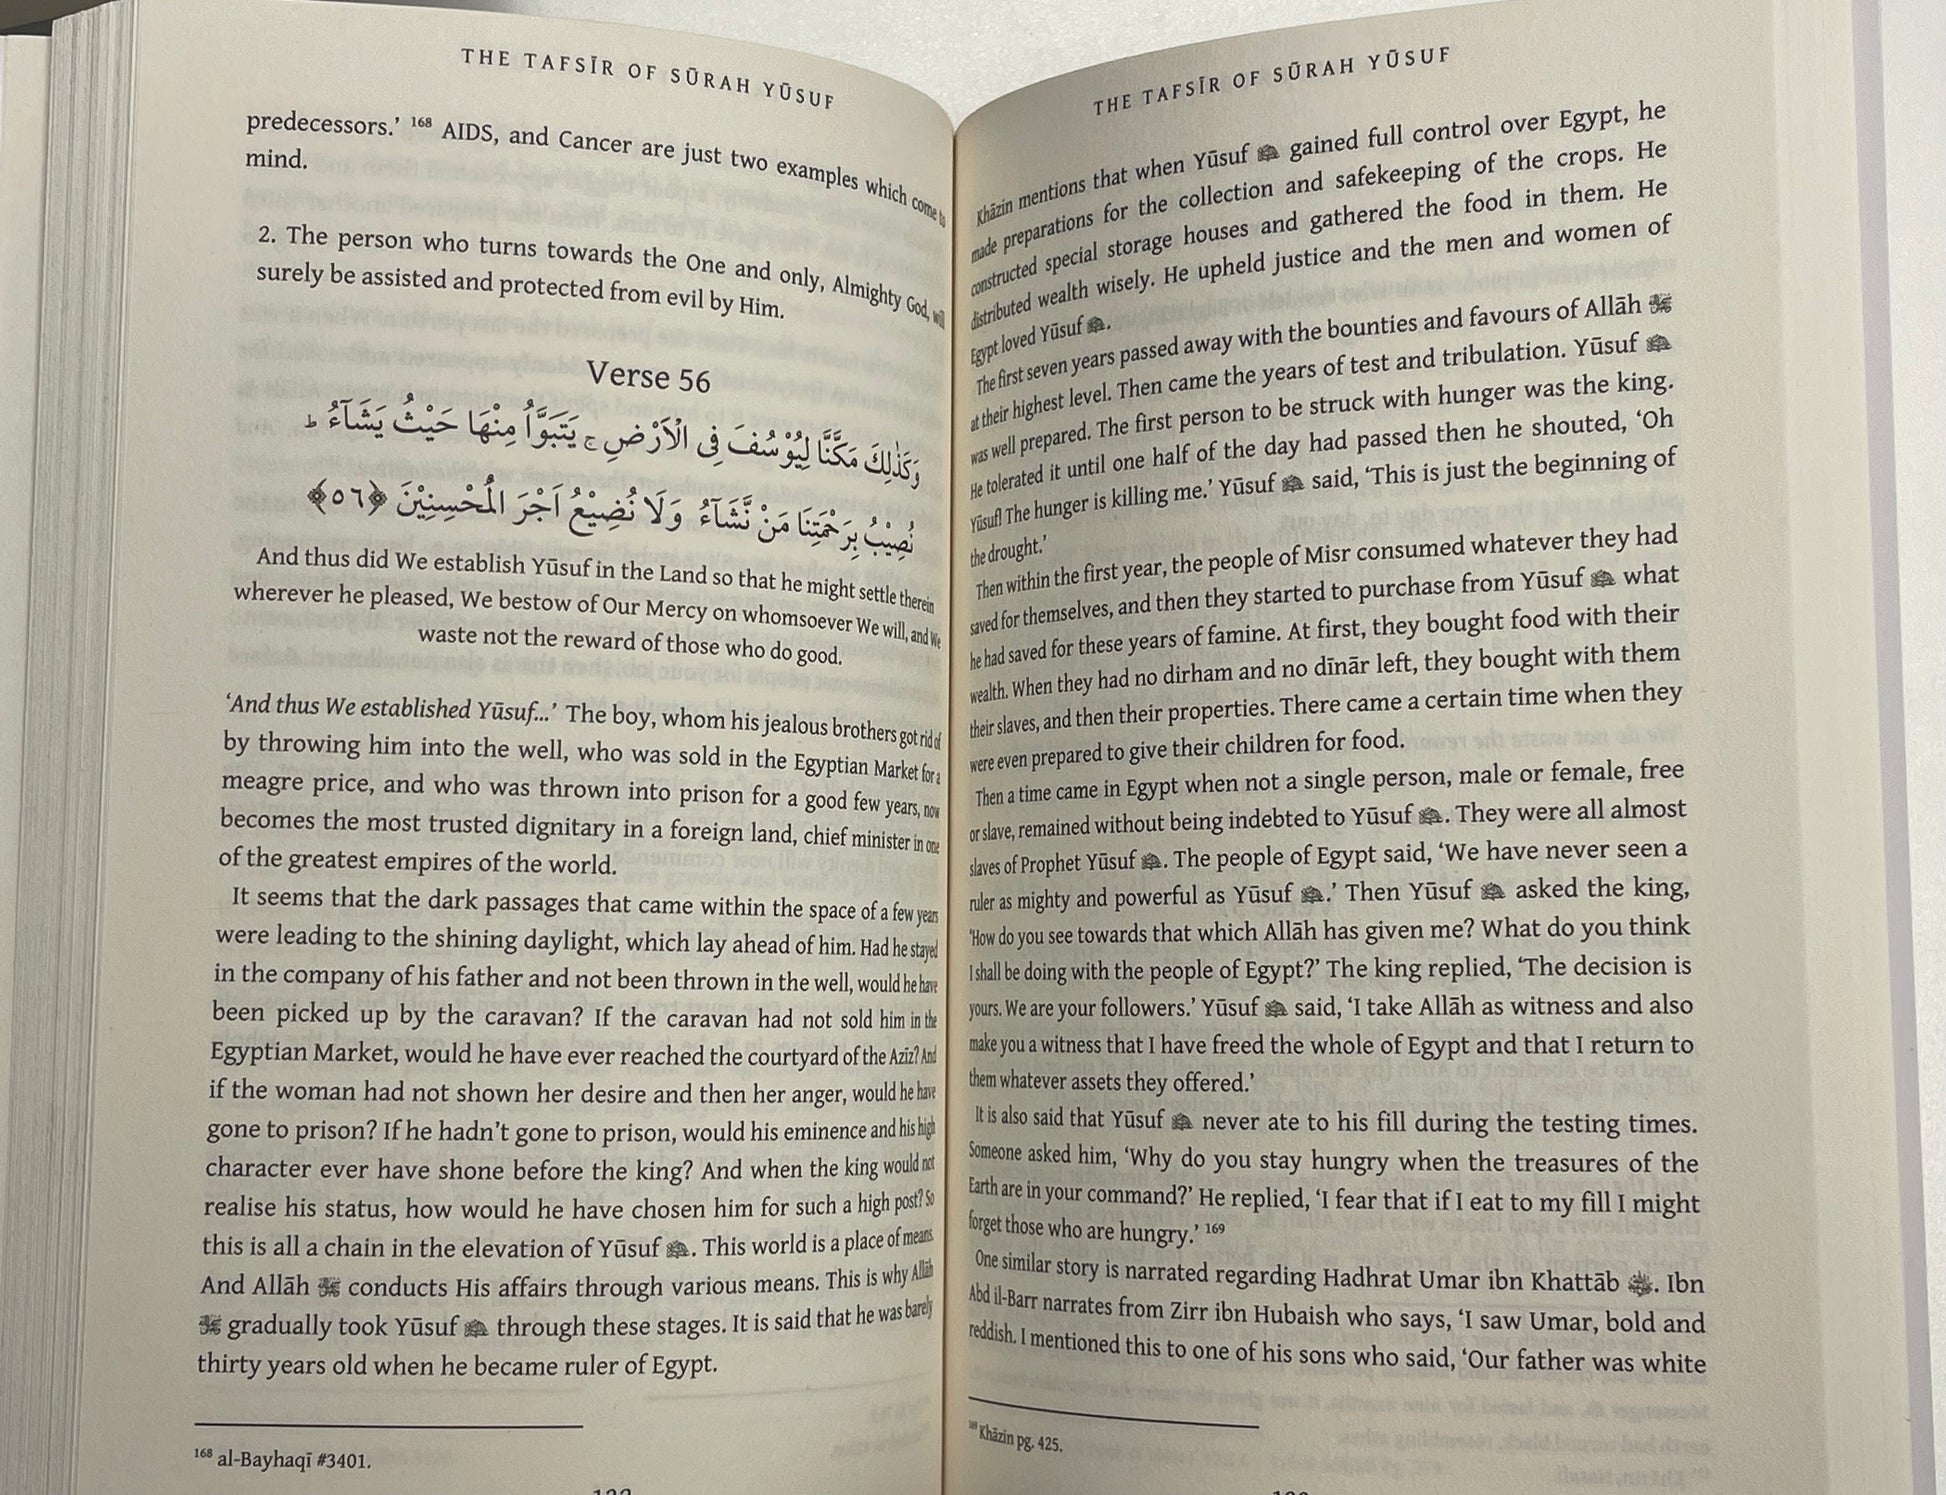 THE TAFSĪR OF SŪRAH YŪSUF
predecessors.’ 168 AIDS, and Cancer are just two examples which come to
mind.
2. The person who turns towards the One and only, Almighty God, will
surely be assisted and protected from evil by Him.
Verse 56
وَكَذٰلِكَ مَكَّنَّا لِيُوْسُفَ فِى الْاَرْضِ ۚ يَتَبَوَّاُ مِنْهَا حَيْثُ يَشَآءُ ؕ
نُصِيْبُ بِرَحْمَتِنَا مَنْ نَّشَآءُ وَلَا نُضِيْعُ اَجْرَ الْمُحْسِنِيْنَ ﴿٥٦﴾
And thus did We establish Yūsuf in the Land so that he might settle therein
wherever he pleased, We bestow of Our Mercy on whomsoever We will, and We
waste not the reward of those who do good.
‘And thus We established Yūsuf...’ The boy, whom his jealous brothers got rid of
by throwing him into the well, who was sold in the Egyptian Market for a
meagre price, and who was thrown into prison for a good few years, now
becomes the most trusted dignitary in a foreign land, chief minister in one
of the greatest empires of the world.
It seems that the dark passages that came within the space of a few years
were leading to the shining daylight, which lay ahead of him. Had he stayed
in the company of his father and not been thrown in the well, would he have
been picked up by the caravan? If the caravan had not sold him in the
Egyptian Market, would he have ever reached the courtyard of the Azīz? And
if the woman had not shown her desire and then her anger, would he have
gone to prison? If he hadn’t gone to prison, would his eminence and his high
character ever have shone before the king? And when the king would not
realise his status, how would he have chosen him for such a high post? So
this is all a chain in the elevation of Yūsuf. This world is a place of means.
And Allāh ﷻ conducts His affairs through various means. This is why Allāh
ﷻ gradually took Yūsuf through these stages. It is said that he was barely
thirty years old when he became ruler of Egypt.
168 al-Bayhaqī #3401.
THE TAFSĪR OF SŪRAH YŪSUF
Khāzin mentions that when Yūsuf gained full control over Egypt, he
made preparations for the collection and safekeeping of the crops. He
constructed special storage houses and gathered the food in them. He
distributed wealth wisely. He upheld justice and the men and women of
Egypt loved Yūsuf.
The first seven years passed away with the bounties and favours of Allāh ﷻ
at their highest level. Then came the years of test and tribulation. Yūsuf
was well prepared. The first person to be struck with hunger was the king.
He tolerated it until one half of the day had passed then he shouted, ‘Oh
Yūsuf! The hunger is killing me.’ Yūsuf said, ‘This is just the beginning of
the drought.’
Then within the first year, the people of Misr consumed whatever they had
saved for themselves, and then they started to purchase from Yūsuf what
he had saved for these years of famine. At first, they bought food with their
wealth. When they had no dirham and no dīnār left, they bought with them
their slaves, and then their properties. There came a certain time when they
were even prepared to give their children for food.
Then a time came in Egypt when not a single person, male or female, free
or slave, remained without being indebted to Yūsuf. They were all almost
slaves of Prophet Yūsuf. The people of Egypt said, ‘We have never seen a
ruler as mighty and powerful as Yūsuf.’ Then Yūsuf asked the king,
‘How do you see towards that which Allāh has given me? What do you think
I shall be doing with the people of Egypt?’ The king replied, ‘The decision is
yours. We are your followers.’ Yūsuf said, ‘I take Allāh as witness and also
make you a witness that I have freed the whole of Egypt and that I return to
them whatever assets they offered.’
It is also said that Yūsuf never ate to his fill during the testing times.
Someone asked him, ‘Why do you stay hungry when the treasures of the
Earth are in your command?’ He replied, ‘I fear that if I eat to my fill I might
forget those who are hungry.’ 169
One similar story is narrated regarding Hadhrat Umar ibn Khattāb. Ibn
Abd il-Barr narrates from Zirr ibn Hubaish who says, ‘I saw Umar, bold and
reddish. I mentioned this to one of his sons who said, ‘Our father was white
169 Khāzin pg. 425.